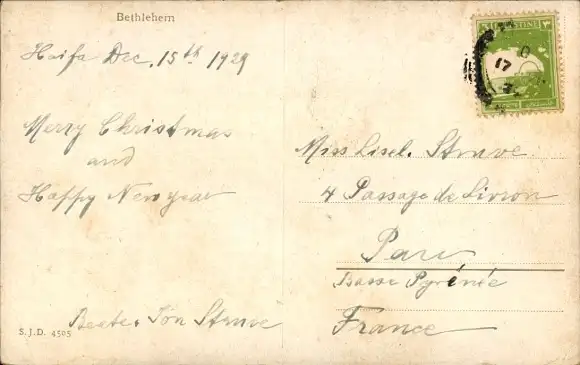 Bethlehem
Haifa Dec. 15th 1929
Merry Christmas
and
Happy New year
Beate. Jön Struve
S.J.D. 4505
PALESTINE
17
Miss Lisel. Struve
4 Passage de Livron
Pau
Basse Pyrénée
France